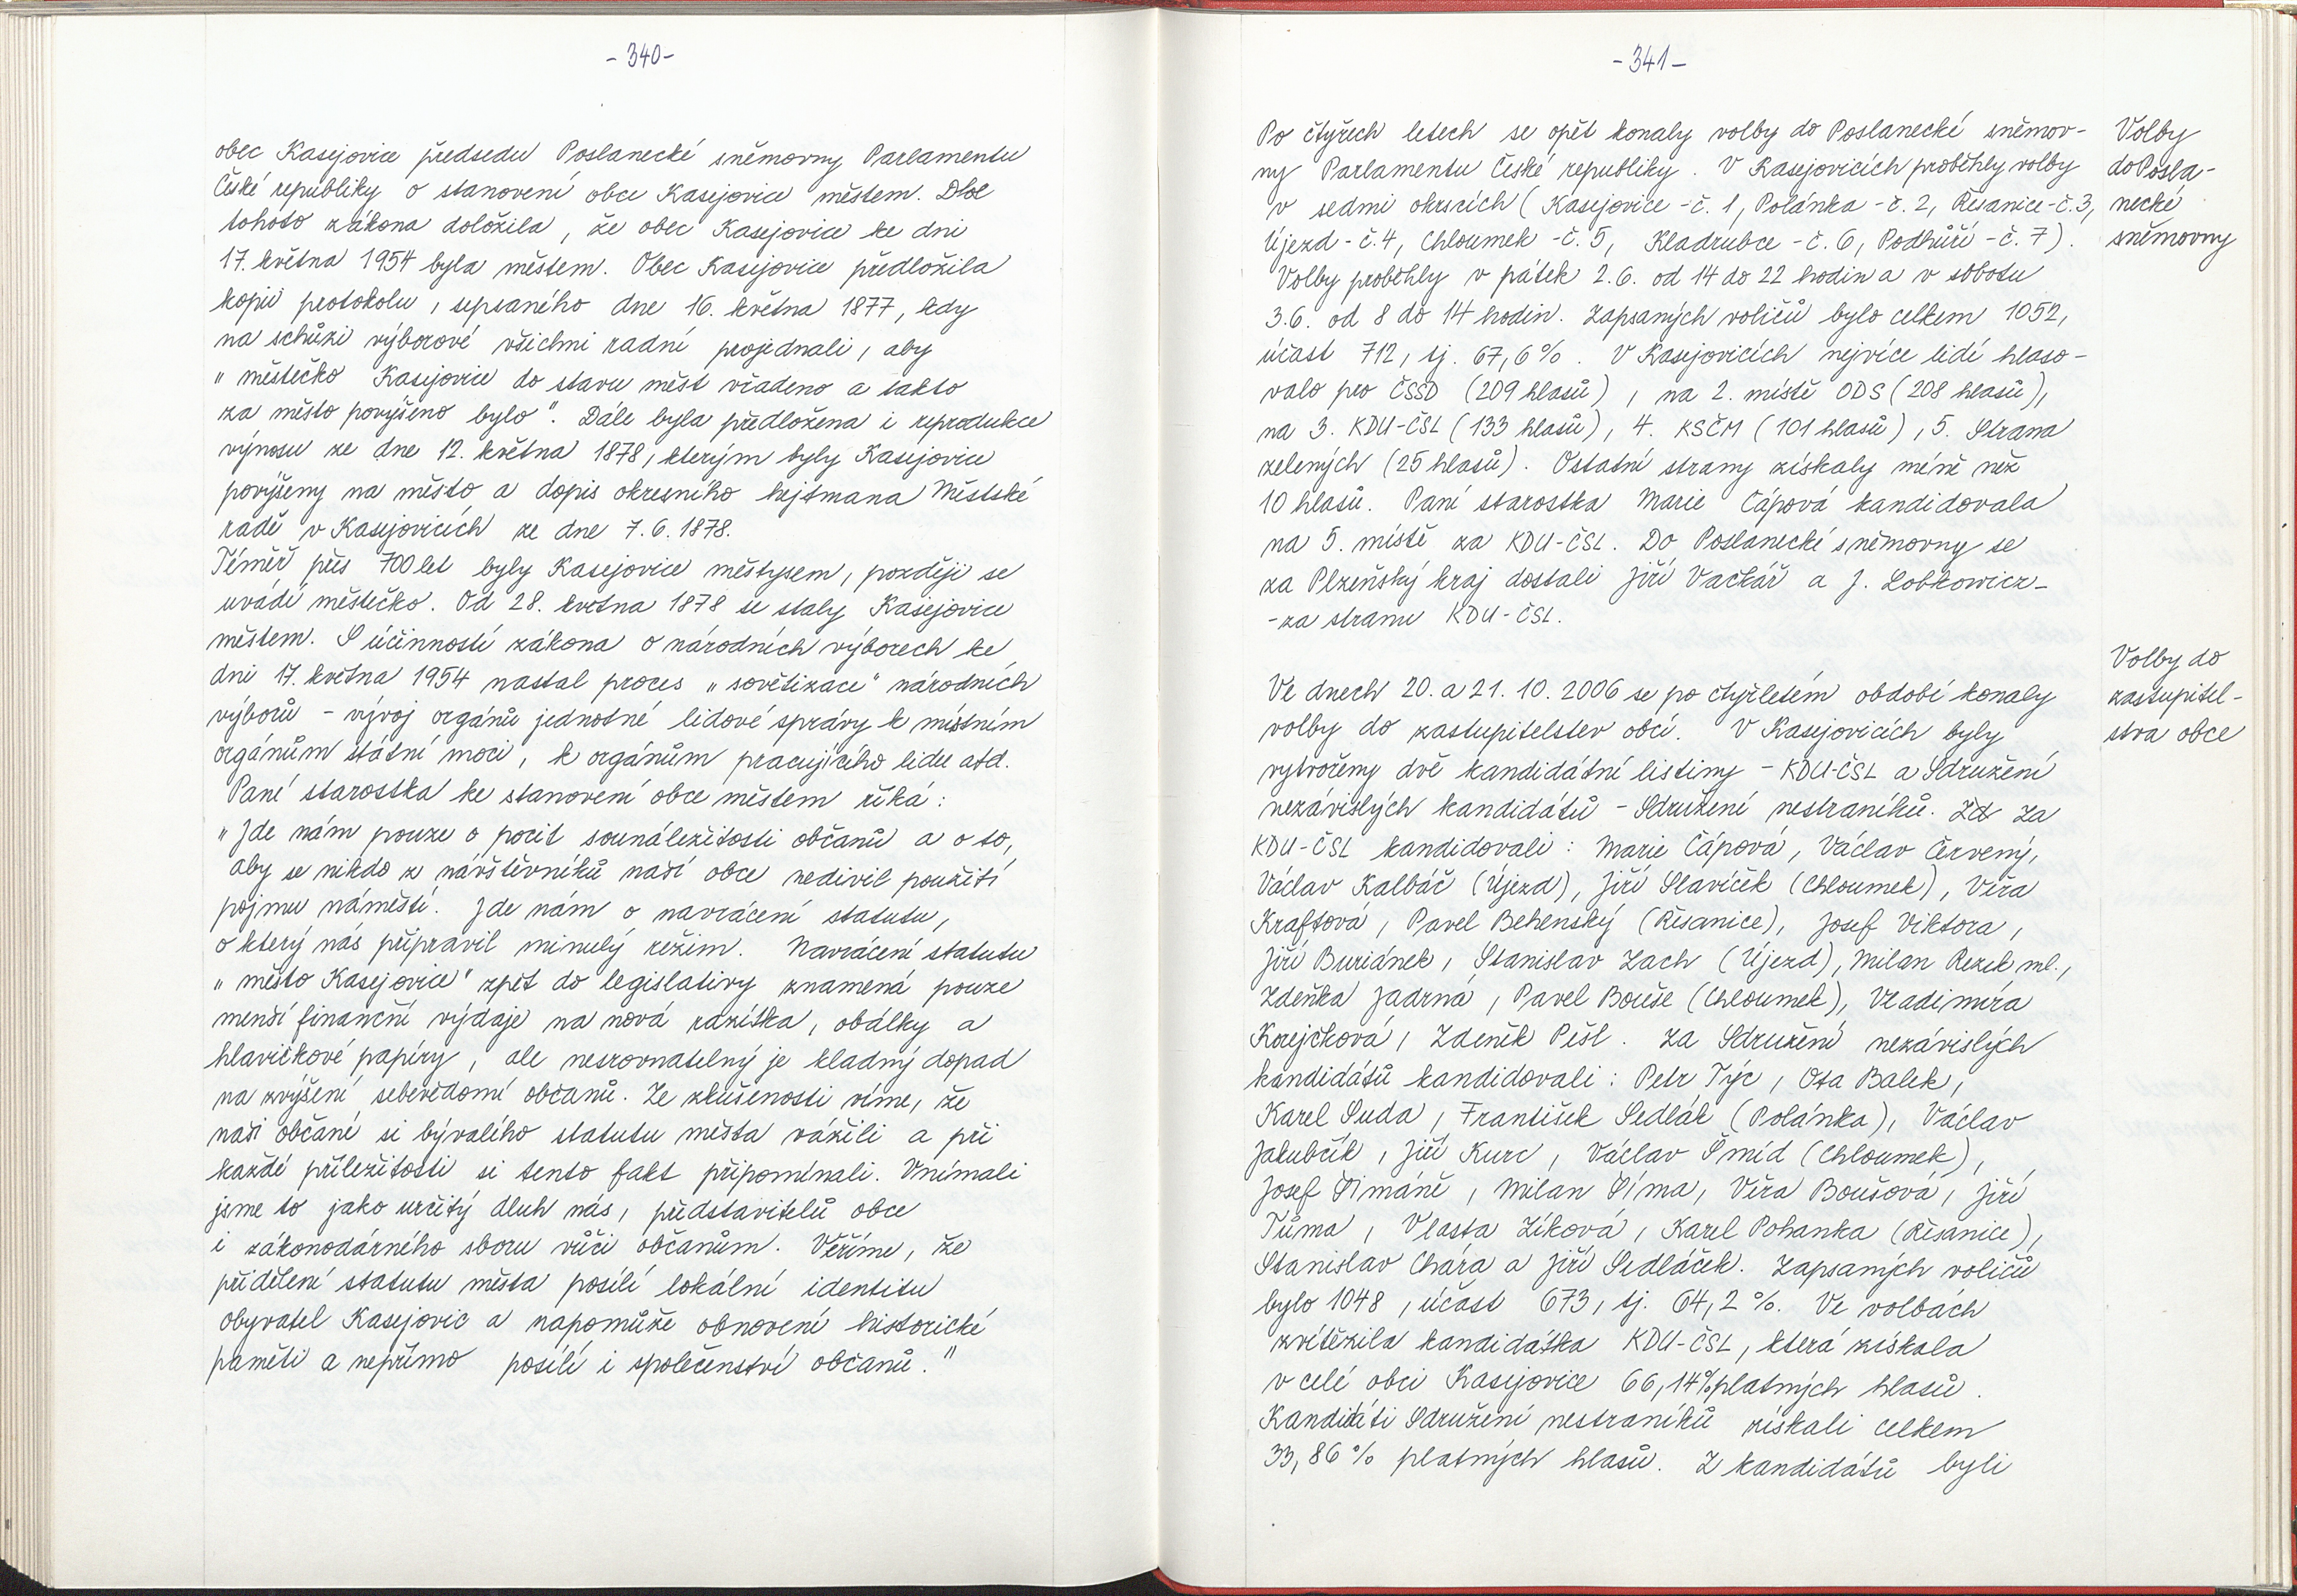 - 340 -
obec Kasejovice předsedu Poslanecké sněmovny Parlamentu
České republiky o stanovení obce Kasejovice městem. Dle
tohoto zákona doložila, že obec Kasejovice ke dni
17. května 1954 byla městem. Obec Kasejovice předložila
kopii protokolu, sepsaného dne 16. května 1877, kdy
na schůzi výborové všichni radní projednali, aby
„ městečko Kasejovice do stavu měst vřadeno a takto
za město povýšeno bylo". Dále byla předložena i reprodukce
výnosu ze dne 12. května 1878, kterým byly Kasejovice
povýšeny na město a dopis okresního hejtmana Městské
radě v Kasejovicích ze dne 7. 6. 1878.
Téměř přes 700 let byly Kasejovice městysem, později se
uvádí městečko. Od 28. května 1878 se staly Kasejovice
městem. S účinností zákona o národních výborech ke
dni 17. května 1954 nastal proces „ sovětizace" národních
výborů - vývoj orgánů jednotné lidové správy k místním
orgánům státní moci, k orgánům pracujícího lidu atd.
Paní starostka ke stanovení obce městem říká:
„ Jde nám pouze o pocit sounáležitosti občanů a o to,
aby se nikdo z návštěvníků naší obce nedivil použití
pojmu náměstí. Jde nám o navrácení statutu,
o který nás připravil minulý režim. Navrácení statutu
„ město Kasejovice" zpět do legislativy znamená pouze
menší finanční výdaje na nová razítka, obálky a
hlavičkové papíry, ale nesrovnatelný je kladný dopad
na zvýšení sebevědomí občanů. Ze zkušenosti víme, že
naši občané si bývalého statutu města vážili a při
každé příležitosti si tento fakt připomínali. Vnímali
jsme to jako určitý dluh nás, představitelů obce
i zákonodárného sboru vůči občanům. Věříme, že
přidělení statutu města posílí lokální identitu
obyvatel Kasejovic a napomůže obnovení historické
paměti a nepřímo posílí i společenství občanů."
- 341 -
Po čtyřech letech se opět konaly volby do Poslanecké sněmov-
ny Parlamentu České republiky. V Kasejovicích proběhly volby
v sedmi okrscích ( Kasejovice - č. 1, Polánka - č. 2, Řesanice - č. 3,
Újezd - č. 4, Chloumek - č. 5, Kladrubce - č. 6, Podhůří - č. 7 ).
Volby proběhly v pátek 2. 6. od 14 do 22 hodin a v sobotu
3. 6. od 8 do 14 hodin. Zapsaných voličů bylo celkem 1052,
účast 712, tj. 67,6 %. V Kasejovicích nejvíce lidí hlaso-
valo pro ČSSD (209 hlasů), na 2. místě ODS (208 hlasů),
na 3. KDU-ČSL (133 hlasů), 4. KSČM (101 hlasů), 5. Strana
zelených (25 hlasů). Ostatní strany získaly méně než
10 hlasů. Paní starostka Marie Čápová kandidovala
na 5. místě za KDU-ČSL. Do Poslanecké sněmovny se
za Plzeňský kraj dostali Jiří Vačkář a J. Lobkowicz -
- za stranu KDU - ČSL.
Ve dnech 20. a 21. 10. 2006 se po čtyřletém období konaly
volby do zastupitelstev obcí. V Kasejovicích byly
vytvořeny dvě kandidátní listiny - KDU-ČSL a Sdružení
nezávislých kandidátů - Sdružení nestraníků. Za
KDU-ČSL kandidovali: Marie Čápová, Václav Červený,
Václav Kalbáč (Újezd), Jiří Slavíček (Chloumek), Věra
Kraftová, Pavel Behenský (Řesanice), Josef Viktora,
Jiří Buriánek, Stanislav Zach (Újezd), Milan Rezek ml.,
Zdeňka Jadrná, Pavel Bouše (Chloumek), Vladimíra
Korejčková, Zdeněk Pešl. Za Sdružení nezávislých
kandidátů kandidovali: Petr Týc, Ota Balek,
Karel Suda, František Sedlák (Polánka), Václav
Jakubčík, Jiří Kurc, Václav Šmíd (Chloumek),
Josef Šimáně, Milan Šíma, Věra Boušová, Jiří
Tůma, Vlasta Zíková, Karel Pohanka (Řesanice),
Stanislav Chára a Jiří Sedláček. Zapsaných voličů
bylo 1048, účast 673, tj. 64,2 %. Ve volbách
zvítězila kandidátka KDU-ČSL, která získala
v celé obci Kasejovice 66,14 % platných hlasů.
Kandidáti Sdružení nestraníků získali celkem
33,86 % platných hlasů. Z kandidátů byli
Volby
do Posla-
necké
sněmovny
Volby do
zastupitel-
stva obce